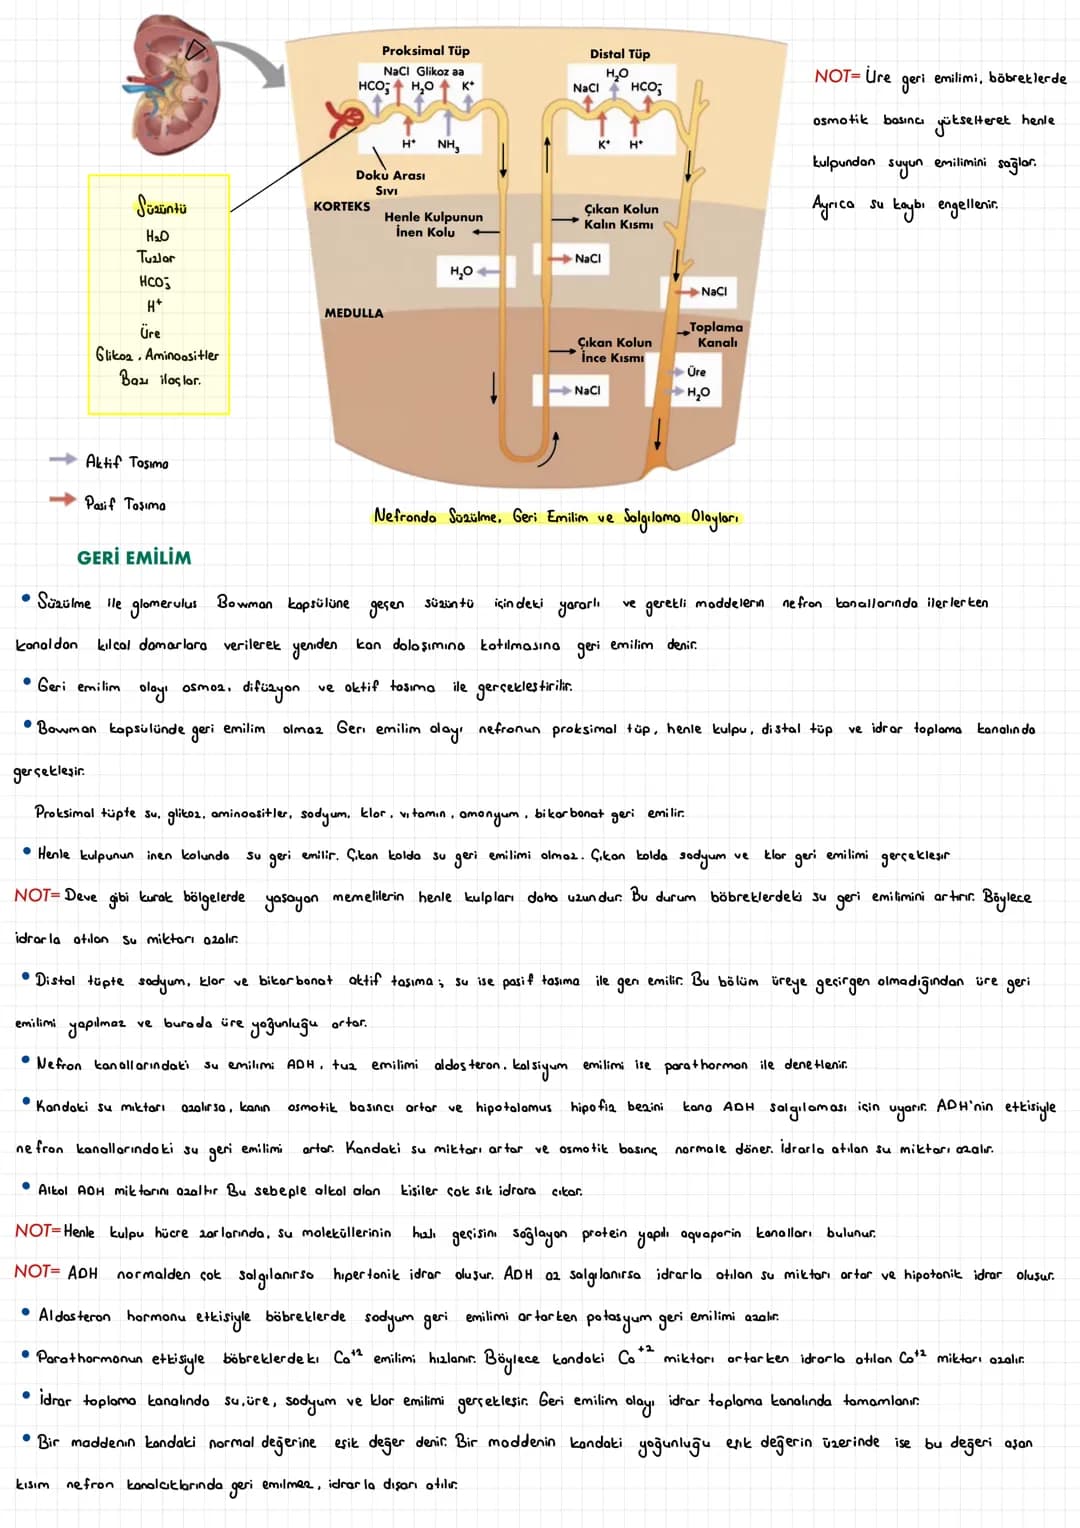 Proksimal Tüp
NaCl Glikoz aa
HCO₃⁻ H₂O K⁺
H⁺ NH₃
Doku Arası
Sıvı
KORTEKS
Henle Kulpunun
İnen Kolu
H₂O
MEDULLA
Distal Tüp
H₂O
NaCl HCO₃⁻
K⁺ H⁺
Çıkan Kolun
Kalın Kısmı
NaCl
NaCl
Toplama
Kanalı
Çıkan Kolun
İnce Kısmı
Üre
H₂O
NaCl
NOT= Üre geri emilimi, böbreklerde
osmotik basıncı yükselterek henle
kulpundan suyun emilimini sağlar.
Ayrıca su kaybı engellenir.
Süzüntü
H₂O
Tuzlar
HCO₃⁻
H⁺
Üre
Glikoz, Aminoasitler
Bazı ilaçlar.
Aktif Taşıma
Pasif Taşıma
Nefronda Süzülme, Geri Emilim ve Salgılama Olayları
GERİ EMİLİM
• Süzülme ile glomerulus Bowman kapsülüne geçen süzüntü içindeki yararlı ve gerekli maddelerin nefron kanallarında ilerlerken
kanaldan kılcal damarlara verilerek yeniden kan dolaşımına katılmasına geri emilim denir.
• Geri emilim olayı osmoz, difüzyon ve aktif taşıma ile gerçekleştirilir.
• Bowman kapsülünde geri emilim olmaz Geri emilim olayı nefronun proksimal tüp, henle kulpu, distal tüp ve idrar toplama kanalında
gerçekleşir.
Proksimal tüpte su, glikoz, aminoasitler, sodyum, klor, vitamin, amonyum, bikarbonat geri emilir.
• Henle kulpunun inen kolunda su geri emilir. Çıkan kolda su geri emilimi olmaz. Çıkan kolda sodyum ve klor geri emilimi gerçekleşir
NOT= Deve gibi kurak bölgelerde yaşayan memelilerin henle kulpları daha uzundur. Bu durum böbreklerdeki su geri emilimini artırır. Böylece
idrarla atılan su miktarı azalır.
• Distal tüpte sodyum, klor ve bikarbonat aktif taşıma; su ise pasif taşıma ile geri emilir. Bu bölüm üreye geçirgen olmadığından üre geri
emilimi yapılmaz ve burada üre yoğunluğu artar.
• Nefron kanallarındaki su emilimi ADH, tuz emilimi aldosteron, kalsiyum emilimi ise parathormon ile denetlenir.
• Kandaki su miktarı azalırsa, kanın osmotik basıncı artar ve hipotalamus hipofiz bezini kana ADH salgılaması için uyarır. ADH'nin etkisiyle
nefron kanallarındaki su geri emilimi artar. Kandaki su miktarı artar ve osmotik basınç normale döner. İdrarla atılan su miktarı azalır.
• Alkol ADH miktarını azaltır Bu sebeple alkol alan kişiler çok sık idrara çıkar.
NOT= Henle kulpu hücre zarlarında, su moleküllerinin hızlı geçişini sağlayan protein yapılı aquaporin kanalları bulunur.
NOT= ADH normalden çok salgılanırsa hipertonik idrar oluşur. ADH az salgılanırsa idrarla atılan su miktarı artar ve hipotonik idrar oluşur.
• Aldosteron hormonu etkisiyle böbreklerde sodyum geri emilimi artarken potasyum geri emilimi azalır.
• Parathormonun etkisiyle böbreklerdeki Ca⁺² emilimi hızlanır. Böylece kandaki Ca⁺² miktarı artarken idrarla atılan Ca⁺² miktarı azalır.
• İdrar toplama kanalında su, üre, sodyum ve klor emilimi gerçekleşir. Geri emilim olayı idrar toplama kanalında tamamlanır.
• Bir maddenin kandaki normal değerine eşik değer denir. Bir maddenin kandaki yoğunluğu eşik değerin üzerinde ise bu değeri aşan
kısım nefron kanalcıklarında geri emilmez, idrarla dışarı atılır.